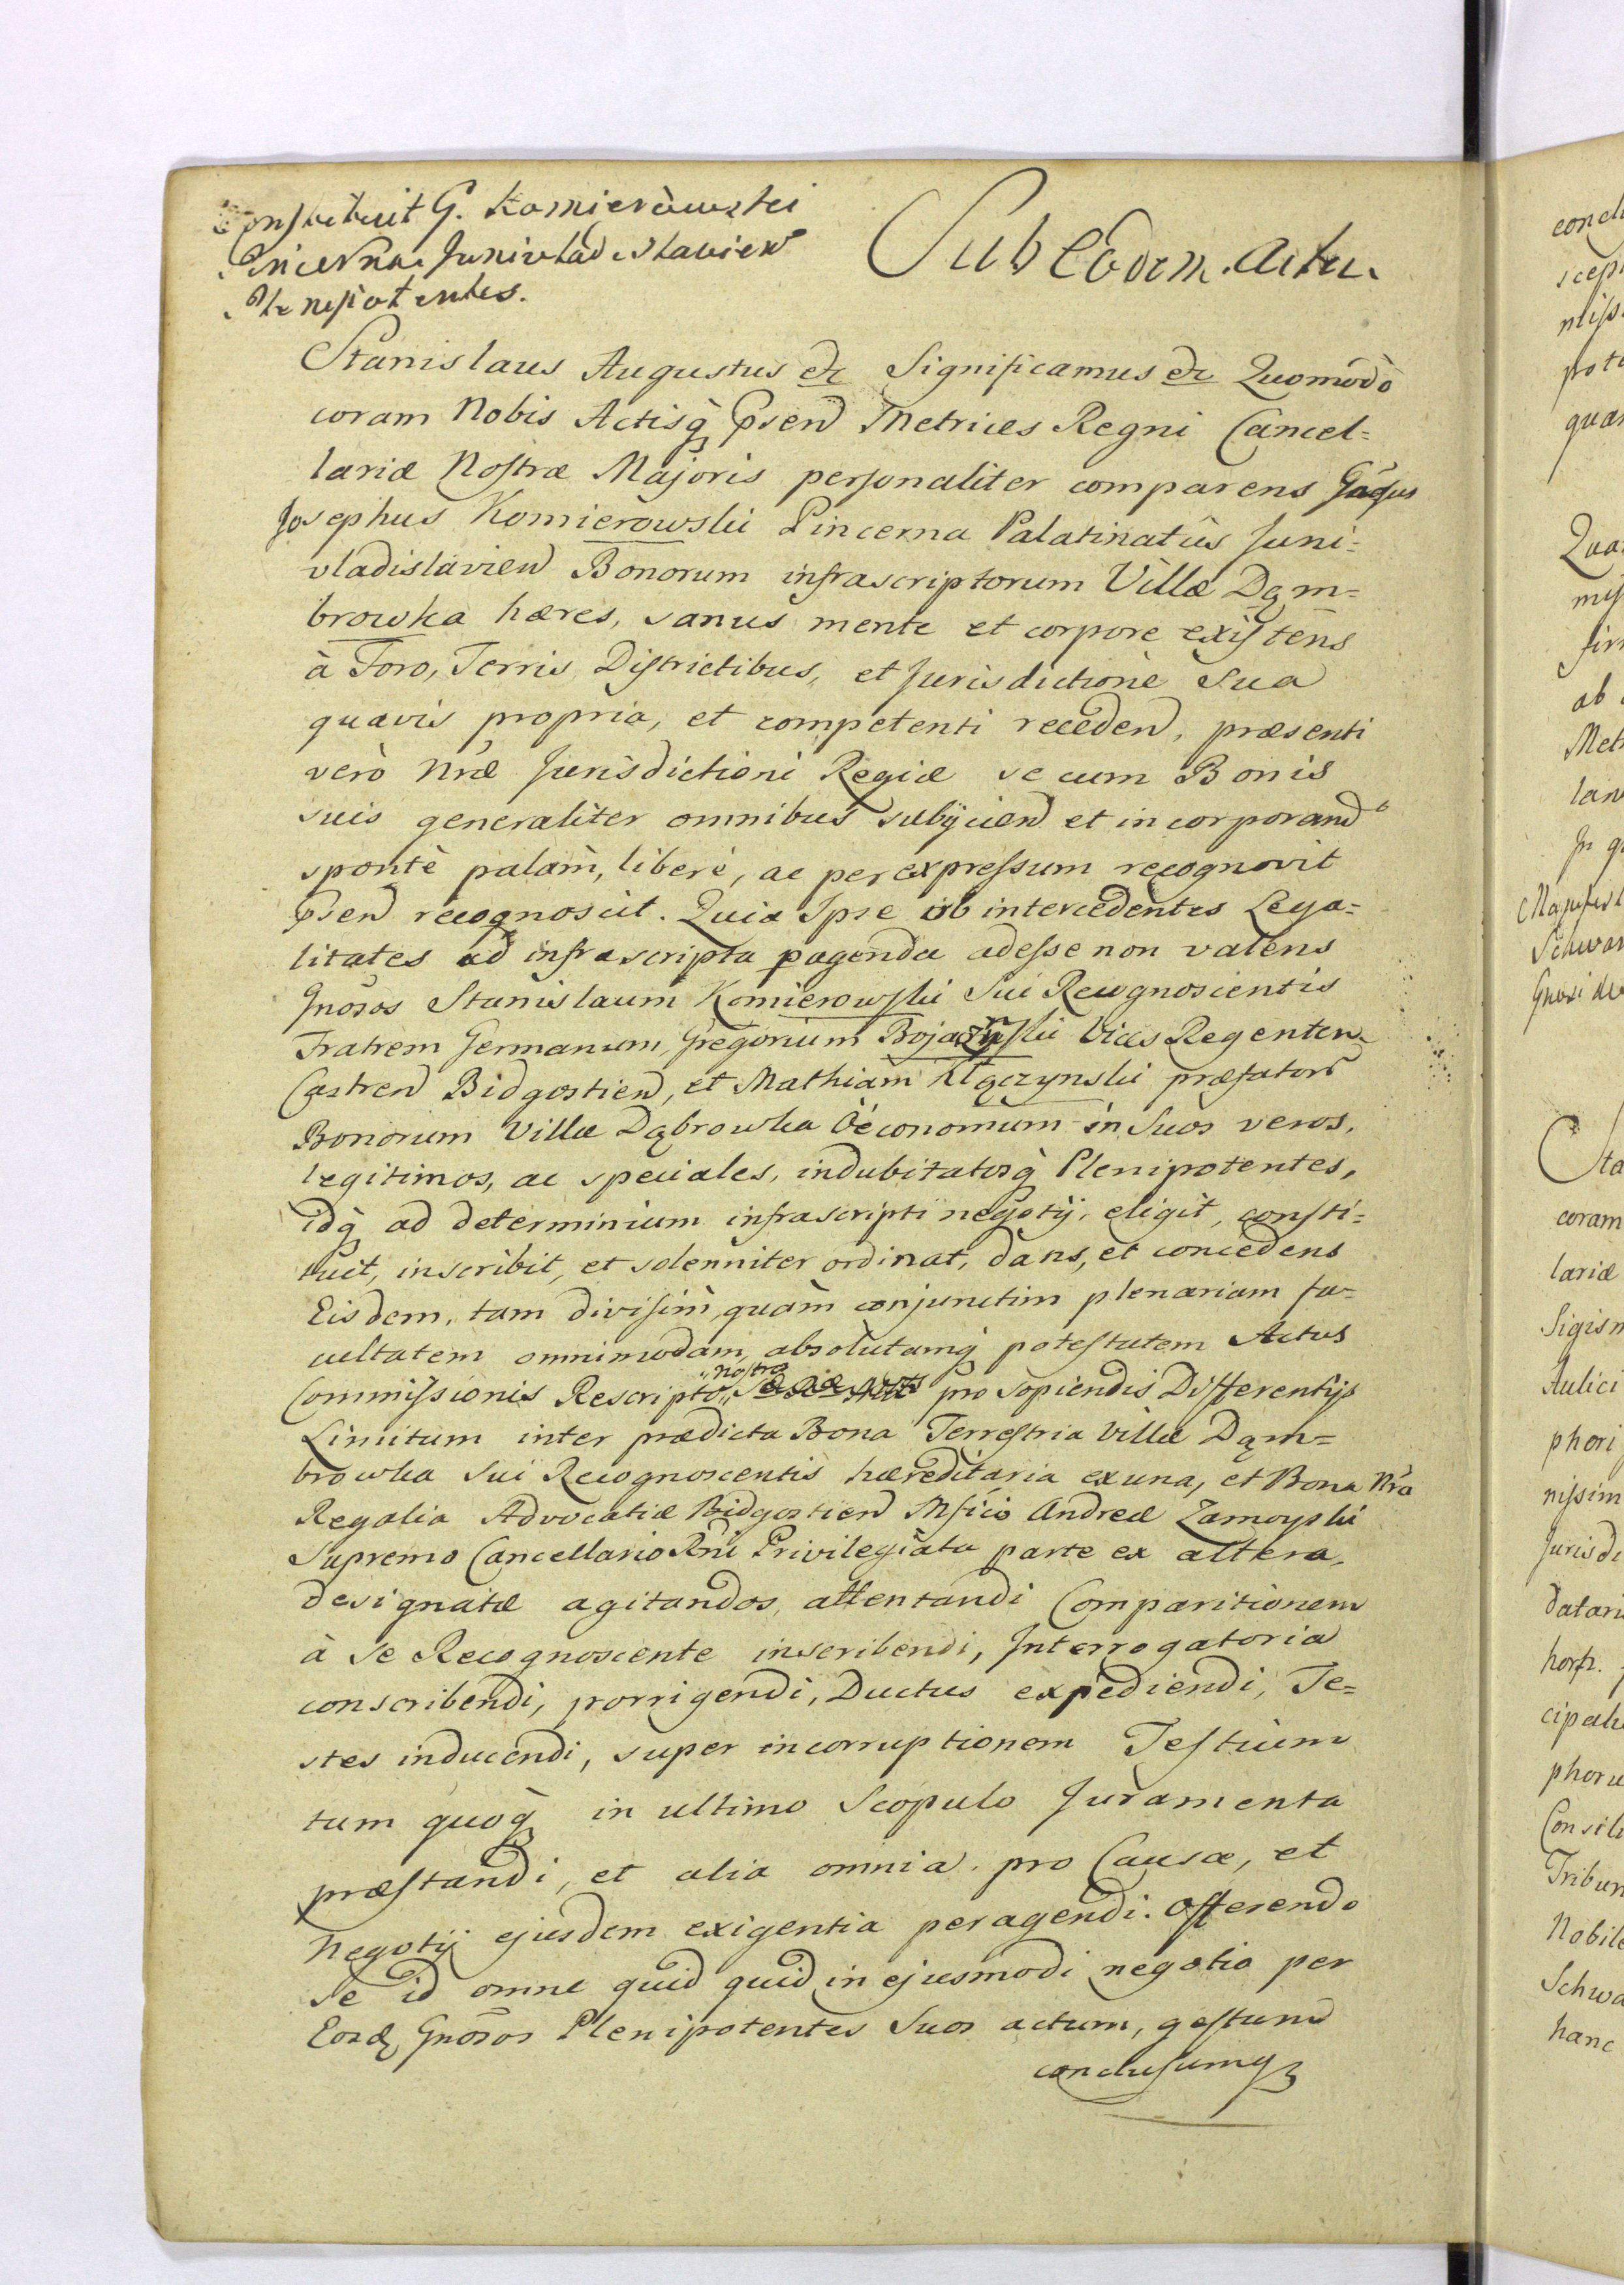 Constituit G. Komierowski
Pincerna Junivladislavien
Plenipotentes.
Sub Eodem Actu.
Stanislaus Augustus etc Significamus etc Quomodò
coram Nobis Actisq̀ Pņsen Metrices Regni Cancel=
lariæ Nostræ Majoris personaliter comparens Gnosus
Josephus Komierowski Pincerna Palatinatûs Juni=
vladislavien Bonorum infrascriptorum Villæ Dąm=
browka hæres, sanus mente et corpore existens
à Foro, Terris, Districtibus, et Jurisdictione Sua
quavis propria, et competenti receden, præsenti
verò Nræ Jurisdictioni Regiæ se cum Bonis
suis generaliter omnibus subijcien et incorporand
spontè palam̀, liberè, ac per expressum recognovit
Pņsen recognoscit. Quia Ipse ob intercedentes Lega=
litates ad infrascripta pagenda adesse non valens
Gnosos Stanislaum Komierowski Sui Recognoscientis
Fratrem Germanum, Gregorium Vices Regentem
Castren Bidgostien, et Mathiam præfator
Bonorum Villæ Dąbrowka Oeconomum in Suos veros,
legitimos, ac speciales, indubitatosq̀ Plenipotentes,
idq̀ ad determinium infrascripti negotij, eligit, consti=
tuit, inscribit, et solenniter ordinat, dans, et concedens
Eisdem, tam divisim̀, quam̀ conjunctim plenariam fa=
cultatem omnimodam, absolutamq̀ potestatem Actus
Commissionis Rescripto „nostro„ pro sopiendis Differentijs
Limitum inter prædicta Bona Terrestria Villæ Dąm=
browka Sui Recognoscentis hæreditaria ex una, et Bona Nra
Regalia Advocatiæ Bidgostien Mfico Andreæ Zamoyski
Supremo Cancellario Rni Privilegiata parte ex altera,
designatæ agitandos, attentandi Comparitionem
à se Recognoscente inscribendi, Interrogatoria
conscribendi, porrigendi, Ductus expediendi, Te=
stes inducendi, super incorruptionem Testium
tum quoq̀ in ultimo Scopulo Juramenta
præstandi, et alia omnia pro Causæ, et
Negotij ejusdem exigentia peragendi. Offerendo
Se id omne quid quid in ejusmodi negotio per
Eosd Gnosos Plenipotentes Suos actum, gestum
conclusumq